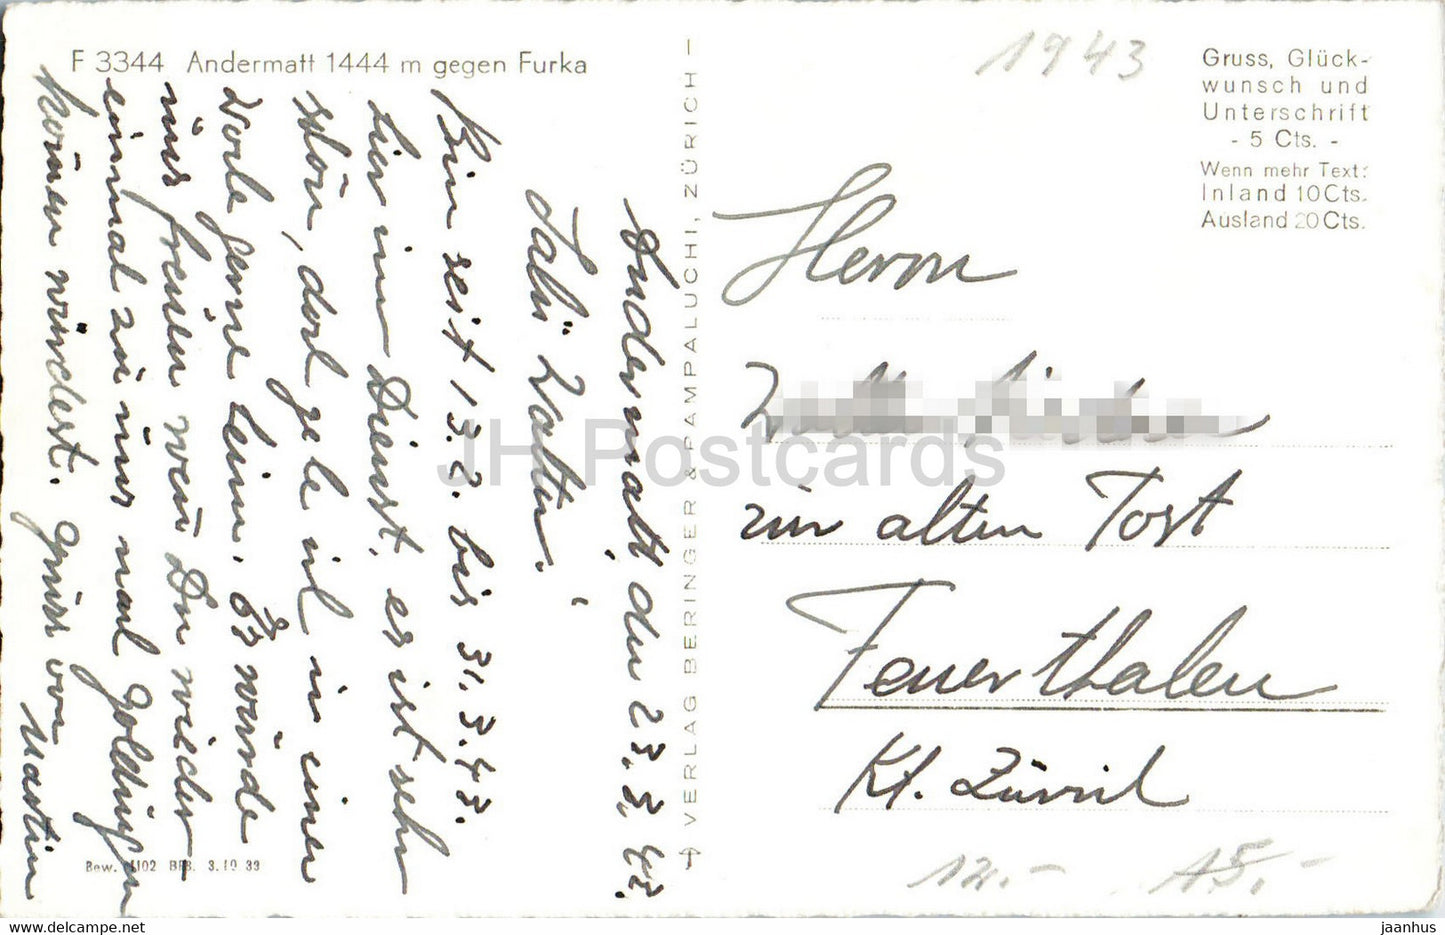 F 3344 Andermatt 1444 m gegen Furka
Andermatt den 23. 3. 43.
Salü Walter!
Bin seit 13.2. bis 31.3.43.
hier im Dienst, es ist sehr
schön, doch gehe ich in einer
Woche gerne heim. Es würde
mich freuen wenn Du wieder
einmal zu uns nach Goldingen
kommen würdest. Gruss von
Martin
Bew. 4102 BRB. 3.10 39
VERLAG BERINGER & PAMPALUCHI, ZÜRICH
1943
Gruss, Glück-
wunsch und
Unterschrift
- 5 Cts. -
Wenn mehr Text:
Inland 10 Cts.
Ausland 20 Cts.
Herrn
zur alten Post
Feuerthalen
Kt. Zürich
12.- 15.-
JH Postcards
www.hippostcard.com
jaanhus